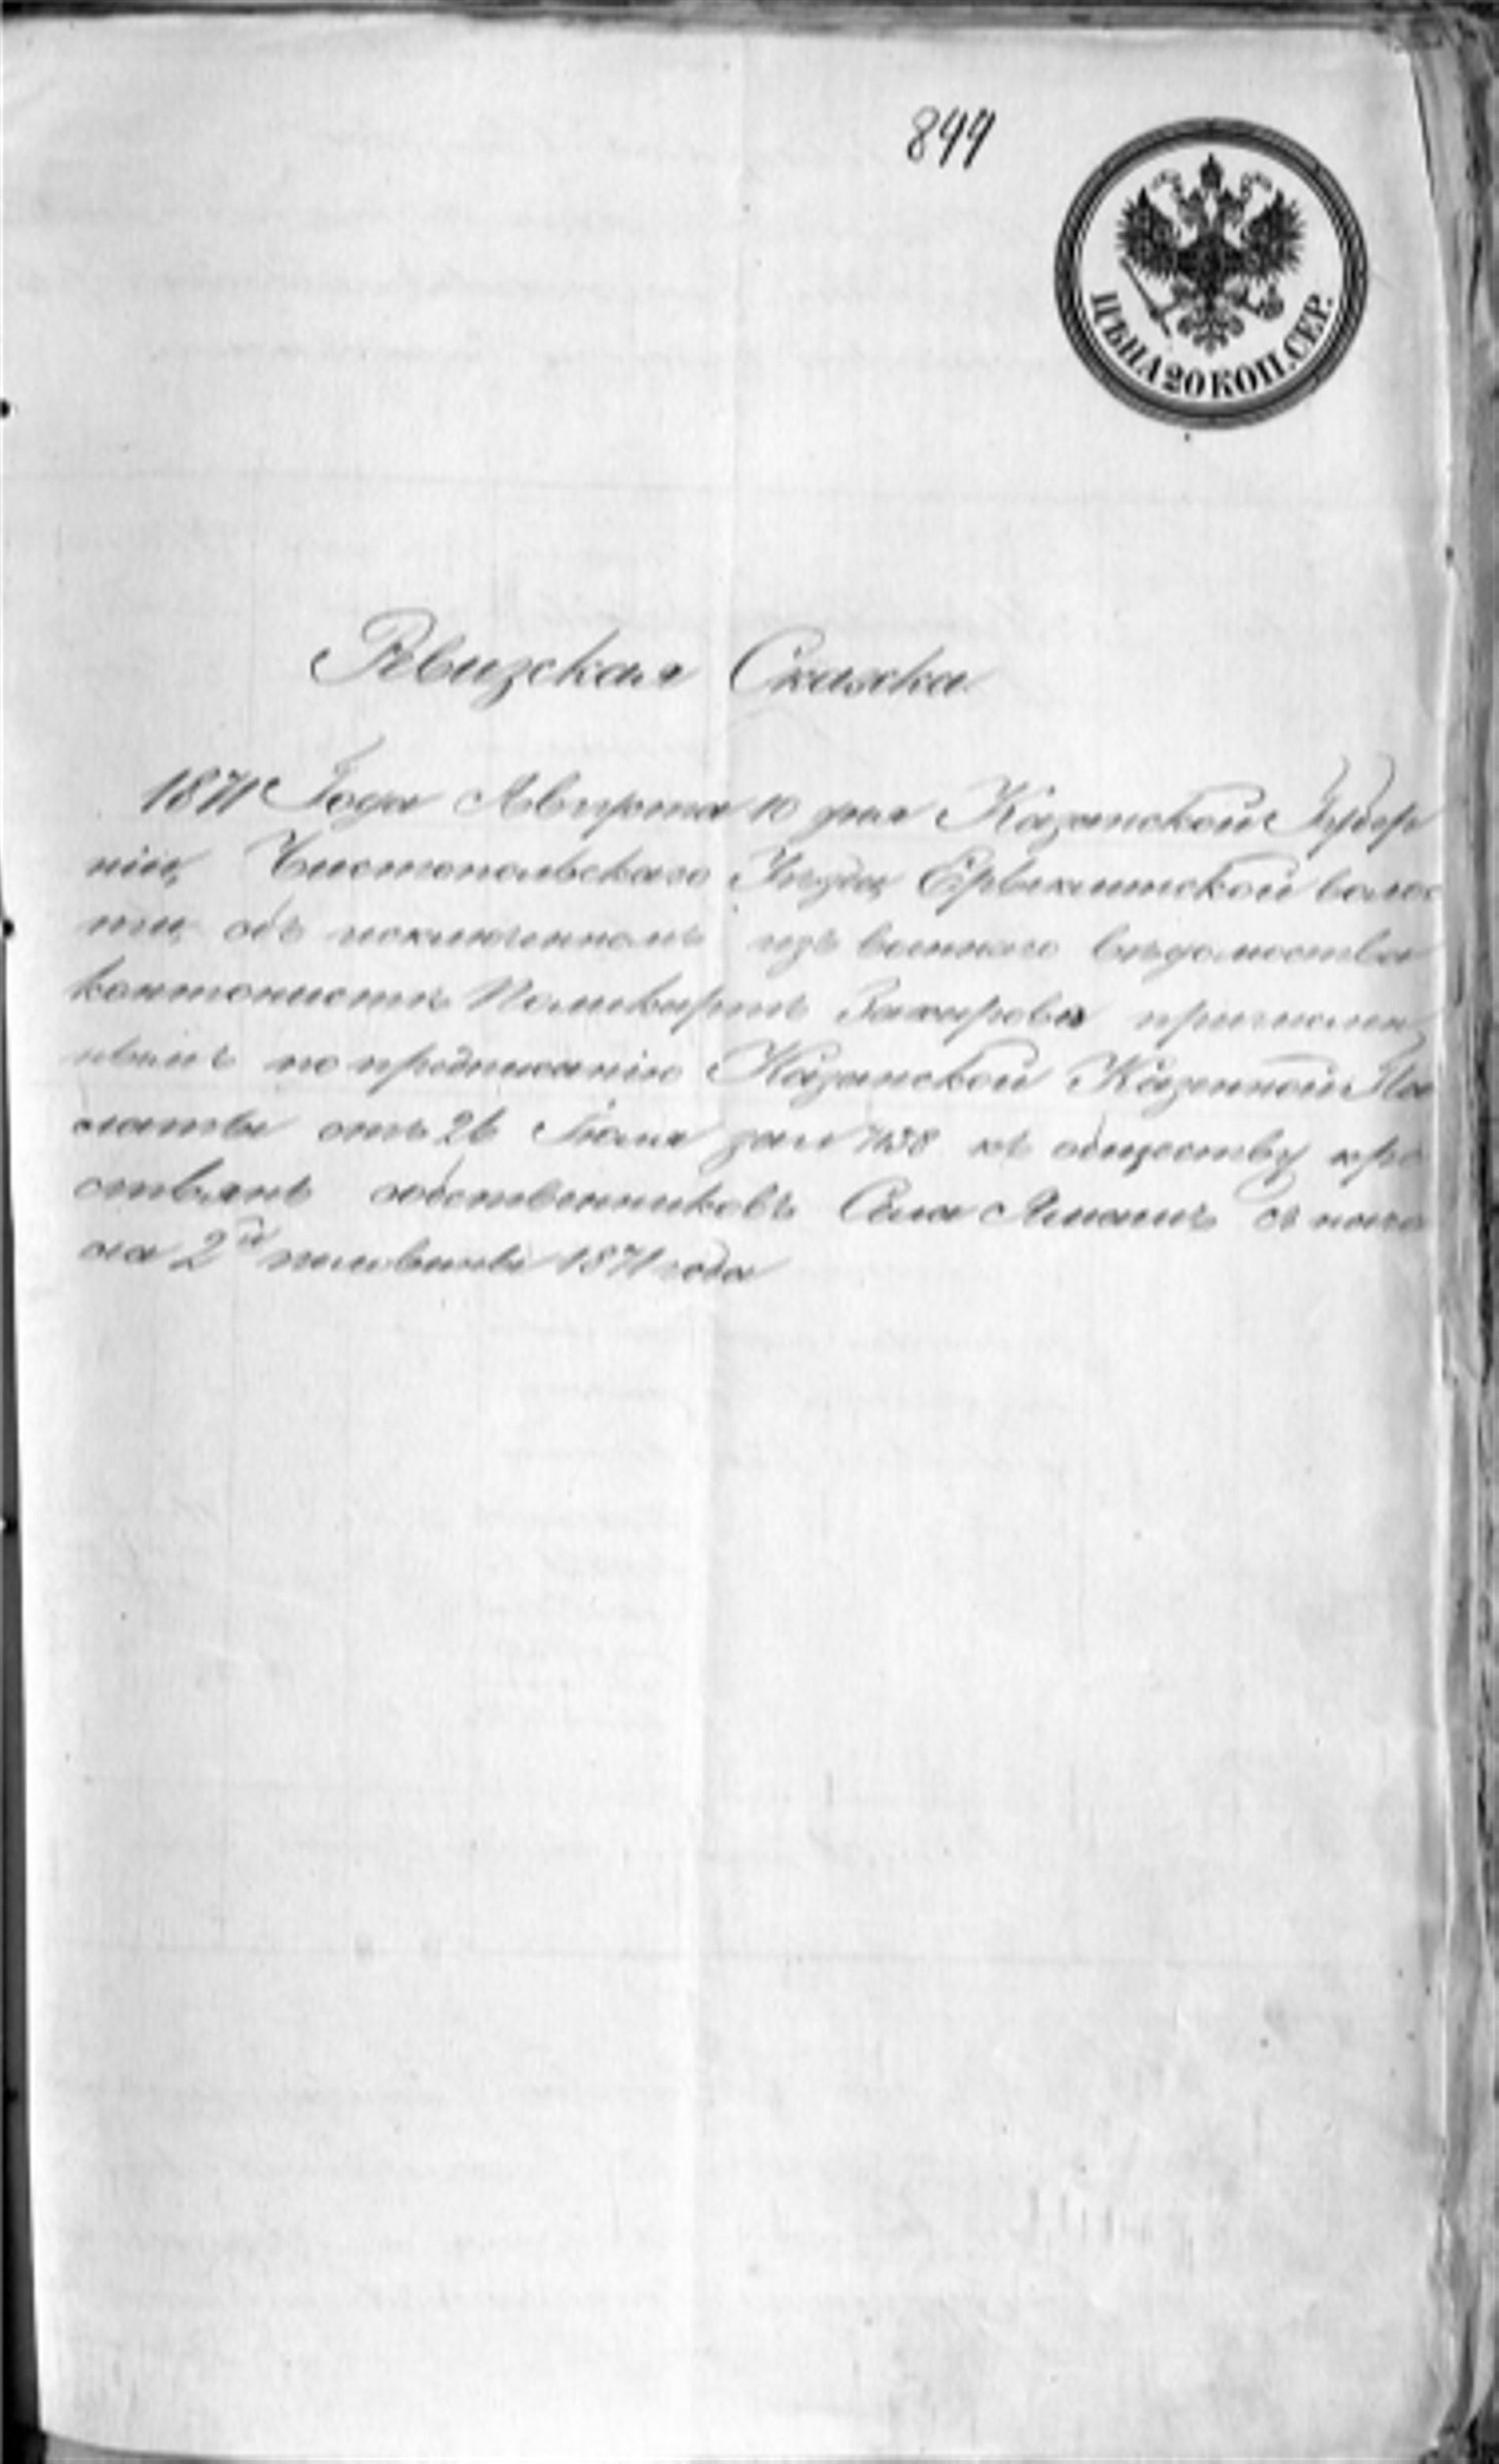 899
ЦѢНА 20 КОП. СЕР.
Ревизская Сказка
1871 Года Августа 10 дня Казанской Губер
ніи, Чистопольскаго Уѣзда, Ерыклинской волос
ти, объ исключенномъ изъ военнаго вѣдомства
кантонистѣ Поликарпѣ Захарова причислен
нымъ по предписанію Казанской Казенной Па
латы отъ 26 Іюля за № 7438 къ обществу кре
стьянъ собственниковъ Села Амашъ съ нача
ла 2й половины 1871 года